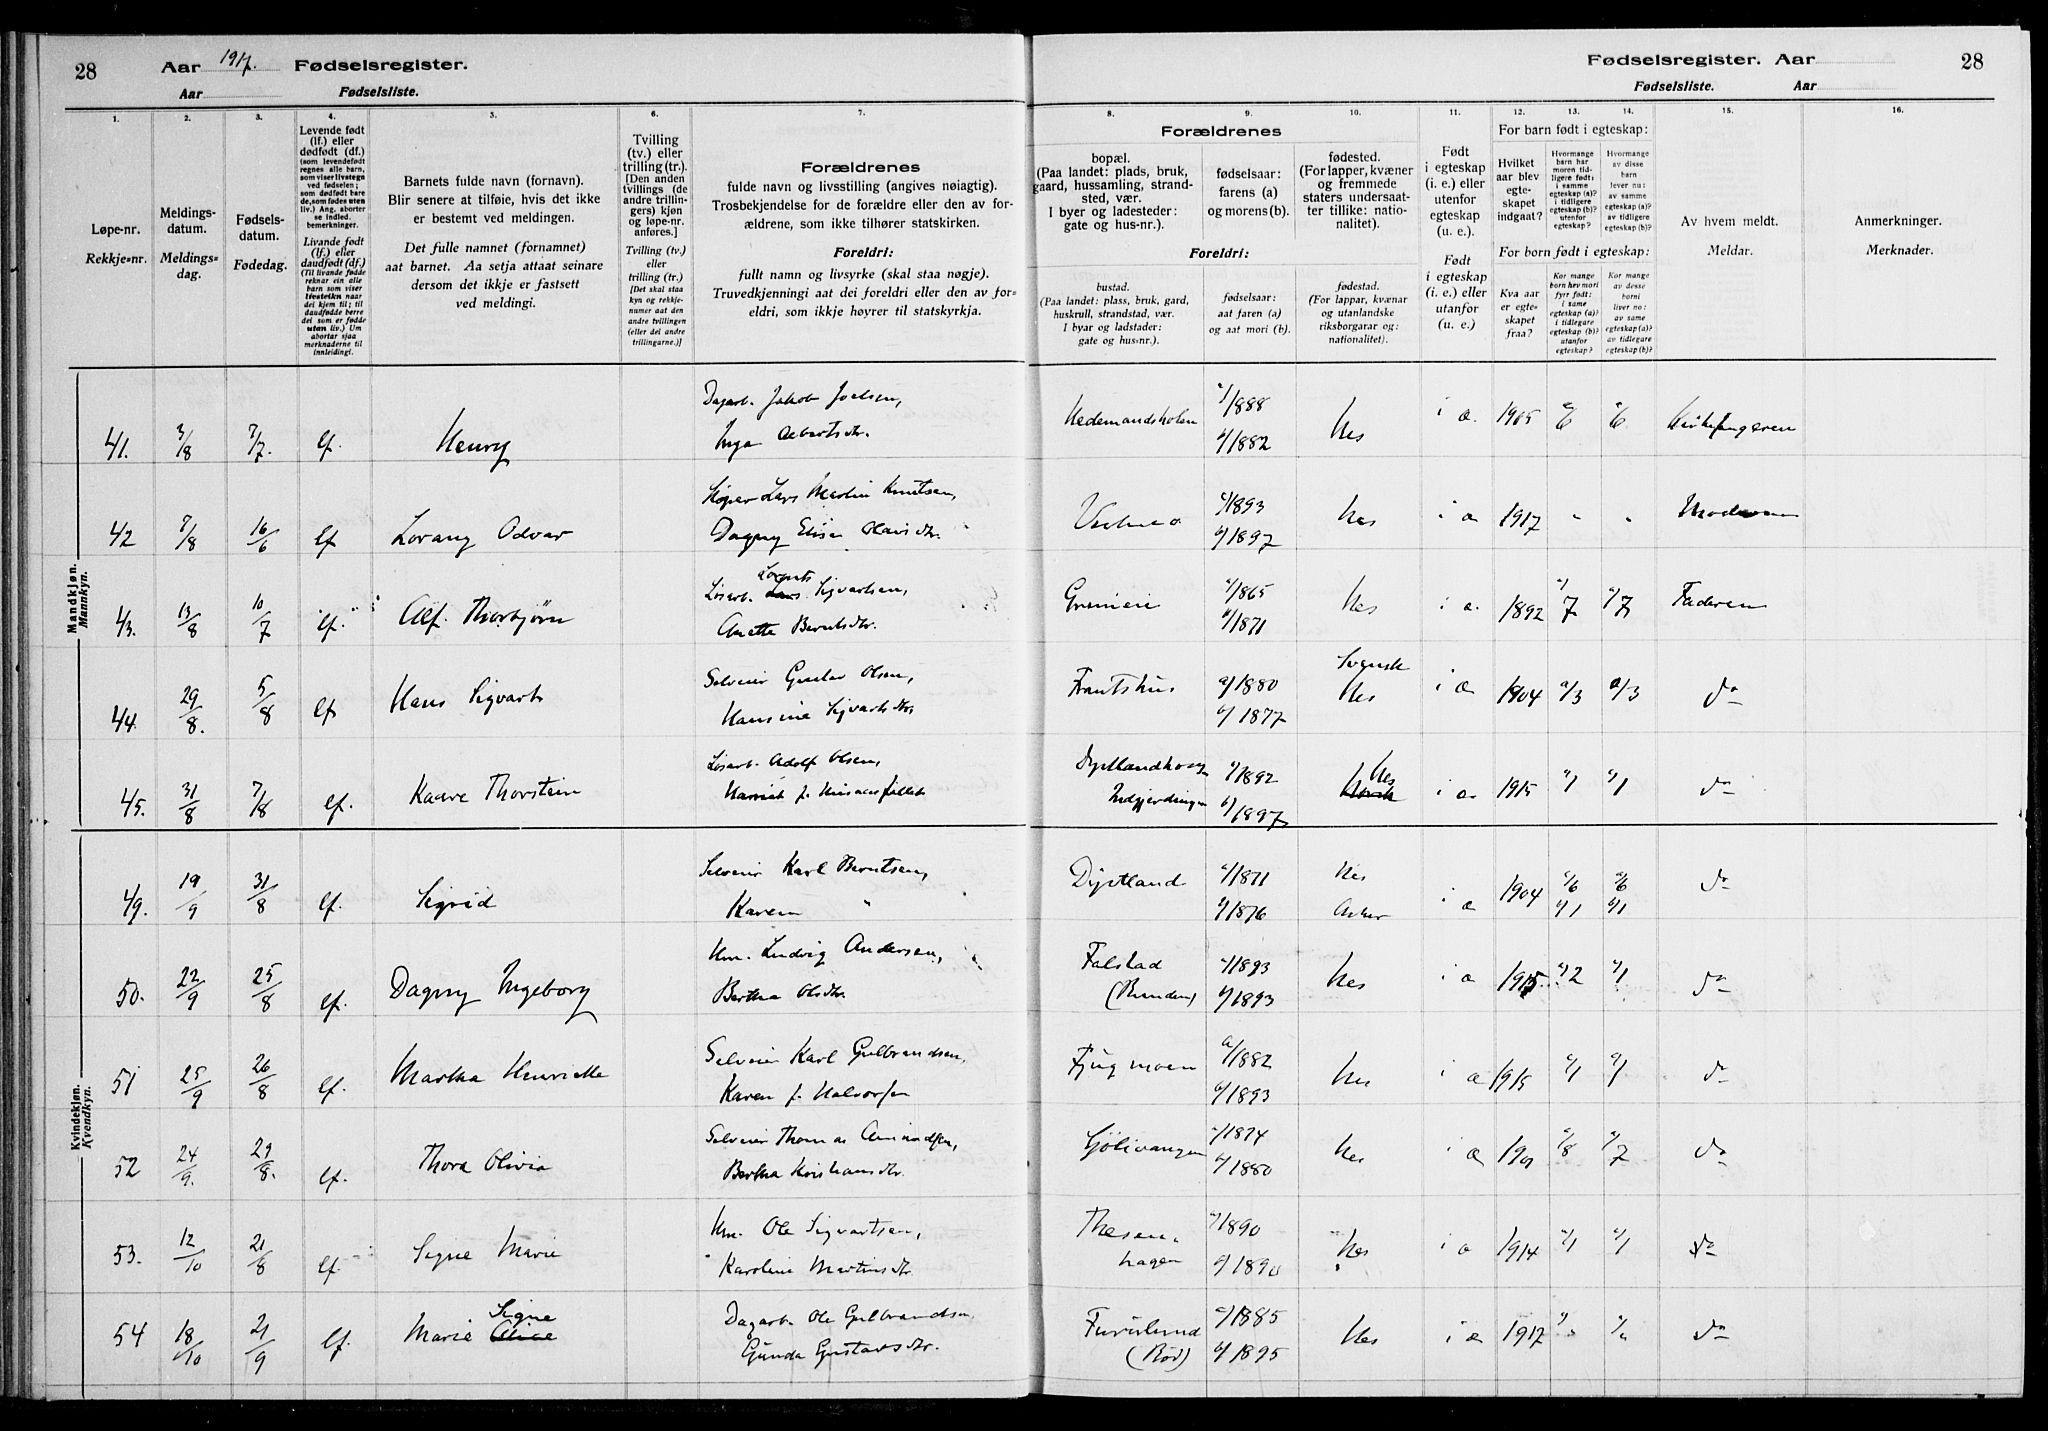 28
Aar 1917. Fødselsregister.
Aar Fødselsliste.
Fødselsregister. Aar
28
Fødselsliste. Aar
1.
Løpe-nr.
Rekkje-nr.
2.
Meldings-
datum.
Meldings-
dag.
3.
Fødsels-
datum.
Fødedag.
4.
Levende født
(lf.) eller
dødfødt (df.)
(som levendefødt
regnes alle barn,
som viser livstegn
ved fødselen;
som dødfødt bare
de, som fødes uten
liv.) Ang. aborter
se indled.
bemerkninger.
Livande født
(lf.) eller
daudfødt (df.)
(Til livande fødde
reknar ein alle
barn som viser
livsteikn naar
dei kjem til; til
daudfødde berre
dei som er fødde
utan liv.) Um
abortar sjaa
merknaderne til
innleidingi.
5.
Barnets fulde navn (fornavn).
Blir senere at tilføie, hvis det ikke
er bestemt ved meldingen.
Det fulle namnet (fornamnet)
aat barnet. Aa setja attaat seinare
dersom det ikkje er fastsett
ved meldingi.
6.
Tvilling
(tv.) eller
trilling (tr.)
[Den andens
tvillings (de
andre trillin-
gers) kjøn
og løpe-nr.
anføres.]
Tvilling (tv.)
eller
trilling (tr.)
[Det skal staa
kyn og rekkje-
numer aat den
andre tvillingen
(eller dei andre
trillingarne.)]
7.
Forældrenes
fulde navn og livsstilling (angives nøiagtig).
Trosbekjendelse for de forældre eller den av for-
ældrene, som ikke tilhører statskirken.
Foreldri:
fullt namn og livsyrke (skal staa nøgje).
Truvedkjenningi aat dei foreldri eller den av for-
eldri, som ikkje høyrer til statskyrkja.
Forældrenes
8.
bopæl.
(Paa landet: plads, bruk,
gaard, hussamling, strand-
sted, vær.
I byer og ladesteder:
gate og hus-nr.).
9.
fødselsaar:
farens (a)
og morens (b).
10.
fødested.
(For lapper, kvæner
og fremmede
staters undersaat-
ter tillike: natio-
nalitet).
Foreldri:
bustad.
(Paa landet: plass, bruk, gard,
huskrull, strandstad, vær.
I byar og ladstadar:
gate og hus-nr.).
fødselsaar:
aat faren (a)
og aat mori (b).
fødestad.
(For lappar, kvænar
og utanlandske
riksborgarar og:
nationalitet).
11.
Født
i egteskap
(i. e.) eller
utenfor
egteskap
(u. e.).
Født
i egteskap
(i. e.) eller
utanfor
egteskap
(u. e.).
For barn født i egteskap:
12.
Hvilket
aar blev
egte-
skapet
indgaat?
13.
Hvormange
barn har
moren tid-
ligere født:
i samme
egteskap (a)?
i tidligere
egteskap (b)?
utenfor
egteskap?
14.
Hvormange
av disse
barn
lever nu:
av samme
egteskap (a)?
av tidligere
egteskap (b)?
For born født i egteskap:
Kva aar
er egte-
skapet
fraa?
Kor mange
born hev mori
fyrr født:
i same
egteskap (a)?
i tidlegare
egteskap (b)?
utanfor
egteskap?
Kor mange
av desse
borni
liver no:
av same
egteskap (a)?
av tidlegare
egteskap (b)?
15.
Av hvem meldt.
Meldar.
16.
Anmerkninger.
Merknader.
Mandkjøn.
Mannkyn.
41. 3/8 7/7. lf. Henry
Dagarb. Jakob Joelsen,
Inga Albertsdtr.
Hedemandsholen a/1888 b/1882 Nes i æ. 1905 a/6 a/6 Kirkesangeren
42 7/8 16/6 lf Lorang Odvar
Lars Martin Knutsen,
Dagny Elise Olausdtr.
a/1893 b/1897 Nes i æ 1917 " " Moderen
43. 13/8 10/7 lf. Alf. Thorbjørn
Løsarb. Lars Lorents Sigvartsen,
Anette Berntsdtr.
a/1865 b/1871 Nes i æ. 1892 a/7 a/7 Faderen
44. 29/8. 5/8 lf Hans Sigvart
Selveier Gustav Olsen,
Hansine Sigvartsdtr
Frantshus a/1880 b/1877 Svensk Nes i æ 1904 a/3 a/3 do
45. 31/8 7/8 lf. Kaare Thorstein
Løsarb. Adolf Olsen,
Harriet f.
a/1892 b/1897 Nes Norsk i æ 1915 a/1 a/1 do
Kvindekjøn.
Kvendkyn.
49. 19/9 31/8 lf. Sigrid
Selveier Karl Berntsen,
Karen "
Dystland a/1871 b/1876 Nes Asker i æ 1904 a/6 b/1 a/6 b/1 do
50. 22/9 25/8 lf. Dagny Ingeborg
Hm. Ludvig Andersen,
Bertha Olsdtr.
Falstad a/1893 b/1893 Nes i æ 1915 a/2 a/1 do
51 25/9 26/8 lf. Martha Henriette
Selveier Karl Gulbrandsen,
Karen f. Halvorsen
Fjugmoen a/1882 b/1893 Nes i æ 1915 a/1 a/1 do
52 24/9. 29/8. lf. Thora Olivia
Selveier Thomas Amundsen,
Bertha Kristiansdtr.
a/1874 b/1880 Nes i æ 1901 a/8 a/7 do
53. 12/10 21/8 lf. Signe Marie
Hm. Ole Sigvartsen,
Karoline Martinsdtr.
Thesenhagen a/1890 b/1890 Nes i æ 1914 a/1 a/1 do
54 18/10 21/9 lf. Marie Signe
Dagarb. Ole Gulbrandsen
Gunda Gustavsdtr.
Furulund (Rød) a/1885 b/1895 Nes i æ 1917 do